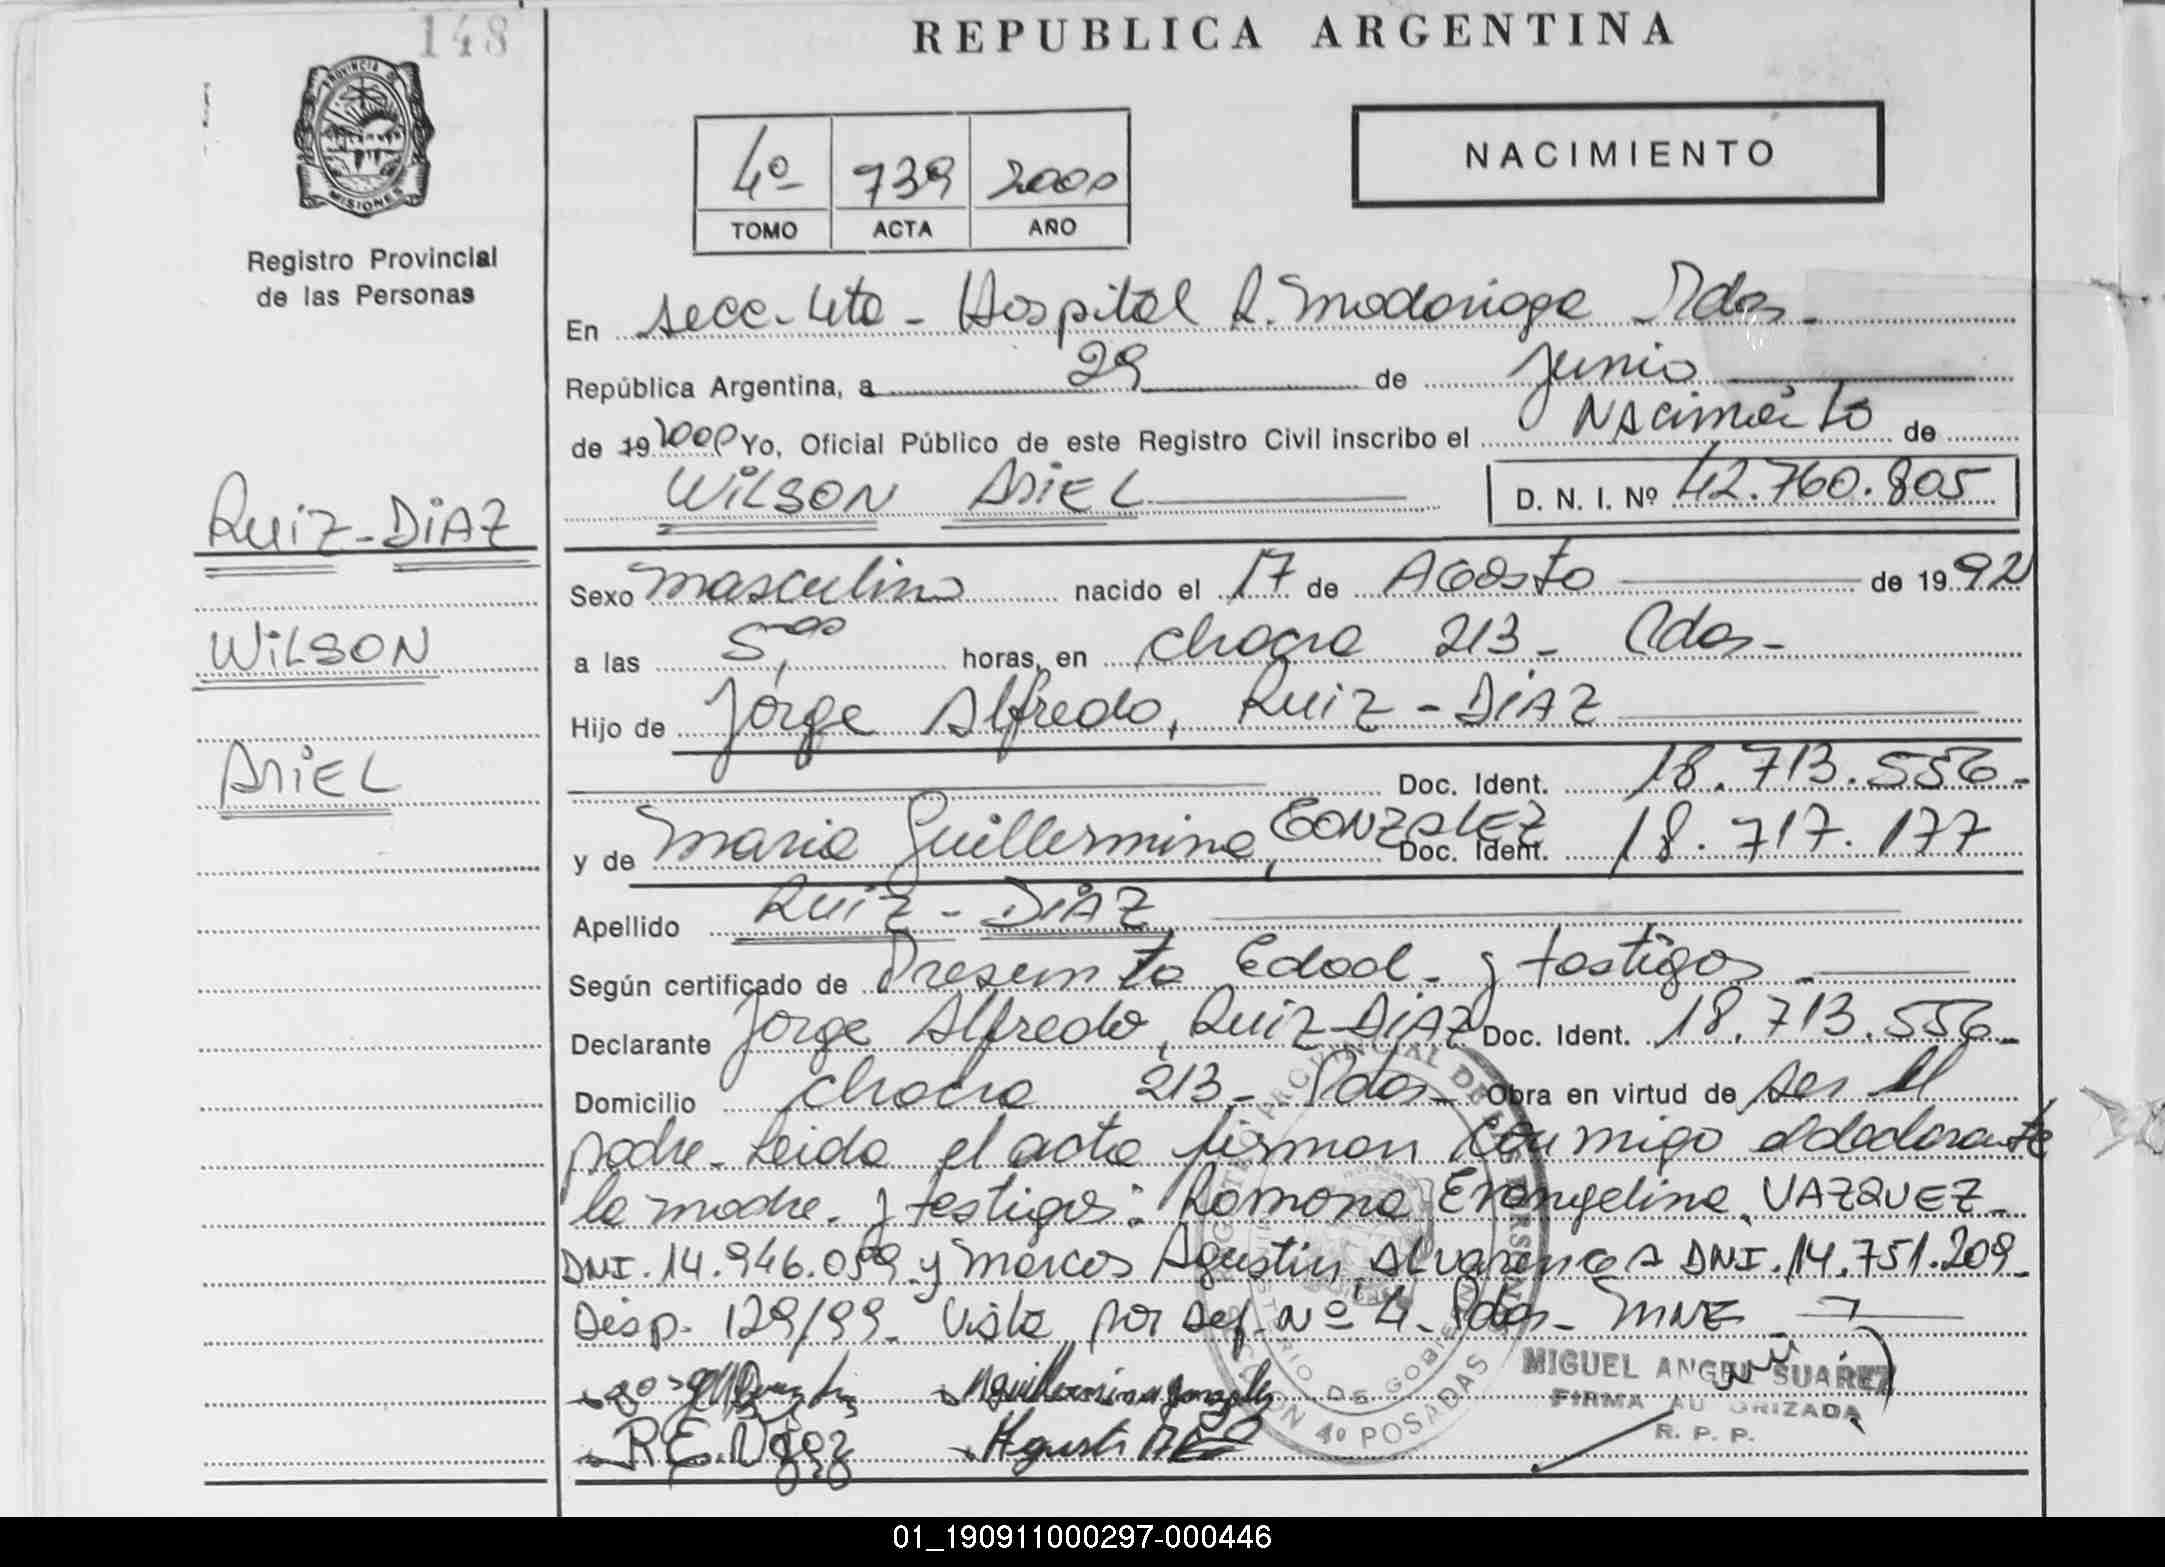 148
REPUBLICA ARGENTINA
PROVINCIA DE
MISIONES
Registro Provincial
de las Personas
4º 739 2000
TOMO ACTA AÑO
NACIMIENTO
En secc. 4ta - Hospital R. Madariaga Pdas -
República Argentina, a 29 de junio
de 19 2000 Yo, Oficial Público de este Registro Civil inscribo el Nacimiento de
WILSON ARIEL D. N. I. Nº 42.760.805
RUIZ-DIAZ
WILSON
ARIEL
Sexo masculino nacido el 17 de Agosto de 1992
a las 5,00 horas, en chacra 213 - Pdas -
Hijo de Jorge Alfredo, RUIZ - DIAZ
Doc. Ident. 18.713.556 -
y de Maria Guillermina, GONZALEZ Doc. Ident. 18.717.177
Apellido RUIZ - DIAZ
Según certificado de Presenta Edad - y testigos -
Declarante Jorge Alfredo, RUIZ-DIAZ Doc. Ident. 18.713.556 -
Domicilio chacra 213 - Pdas - Obra en virtud de ser el
padre - Leida el acta firman conmigo el declarante
la madre - y testigos: Ramona Evangelina, VAZQUEZ -
DNI. 14.946.059 y Marcos Agustin, ALVARENGA DNI. 14.751.209 -
Disp. 129/99 - Vista por Def. Nº 4 - Pdas - MNE -
MIGUEL ANGEL SUAREZ
FIRMA AUTORIZADA
R. P. P.
Mguillermina gonzalez
R.E.
Agusti
REGISTRO PROVINCIAL DE LAS PERSONAS
MINISTERIO DE GOBIERNO
SECCION 4º POSADAS
01_190911000297-000446